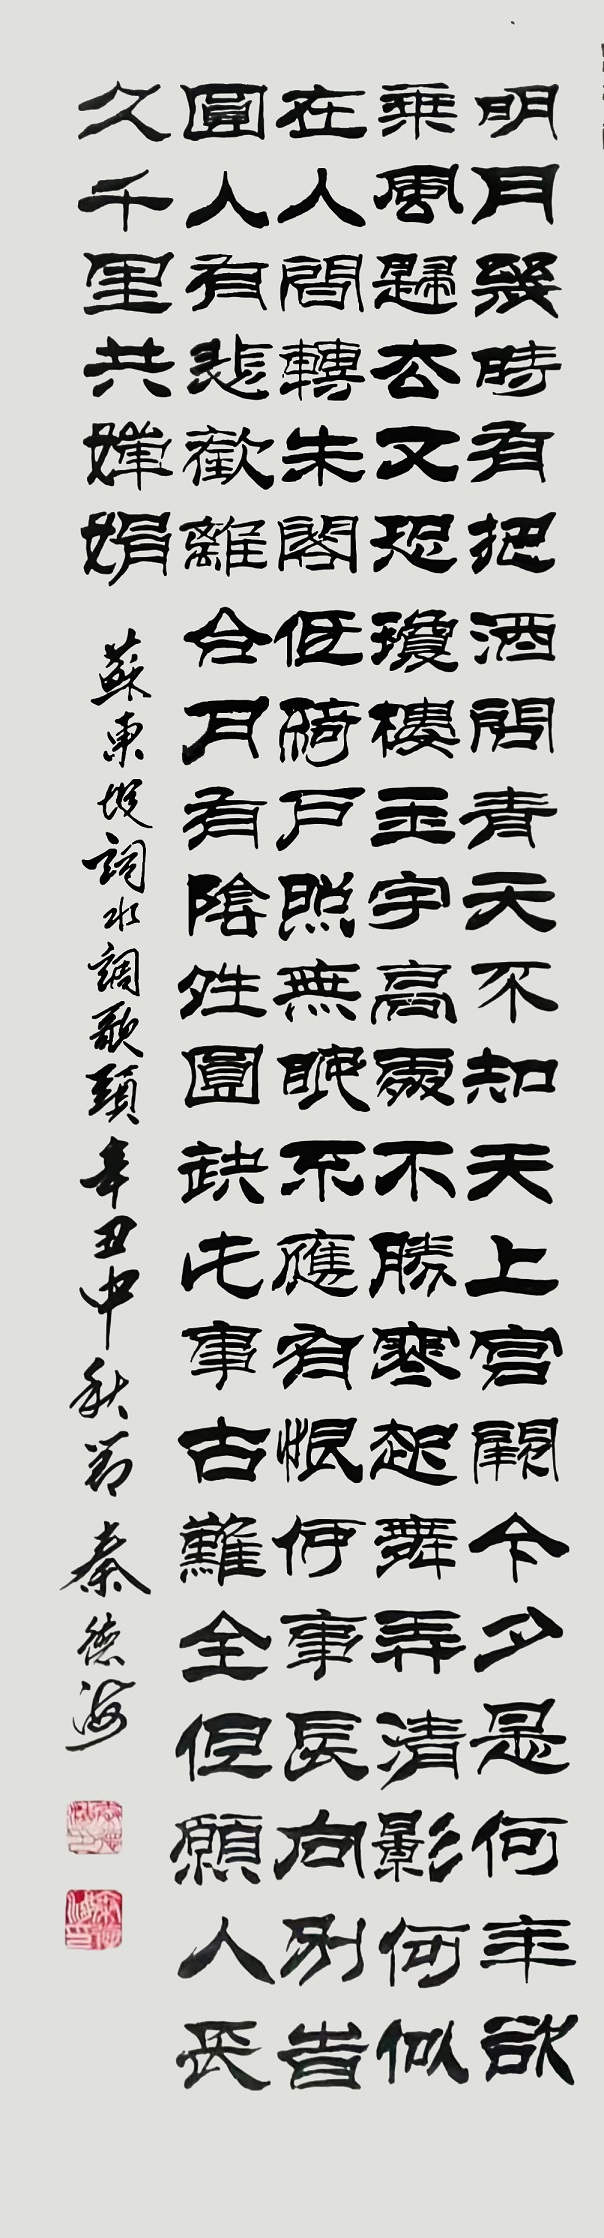 明月幾時有把酒問青天不知天上宮闕今夕是何年欲
乘風歸去又恐瓊樓玉宇高處不勝寒起舞弄清影何似
在人間轉朱閣低綺戶照無眠不應有恨何事長向別旹
圓人有悲歡離合月有陰夝圓缺此事古難全但願人長
久千里共嬋娟 蘇東坡詞水調歌頭辛丑中秋節 秦德海